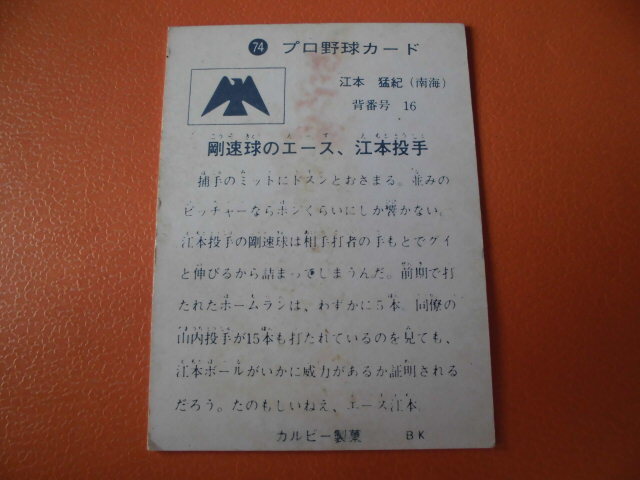 74 プロ野球カード
江本 猛紀（南海）
背番号 16
剛速球のエース、江本投手
捕手のミットにドスンとおさまる。並みの
ピッチャーならポンくらいにしか響かない。
江本投手の剛速球は相手打者の手もとでグイ
と伸びるから詰まってしまうんだ。前期で打
たれたホームランは、わずかに5本。同僚の
山内投手が15本も打たれているのを見ても、
江本ボールがいかに威力があるか証明される
だろう。たのもしいねえ、エース江本。
カルビー製菓 BK